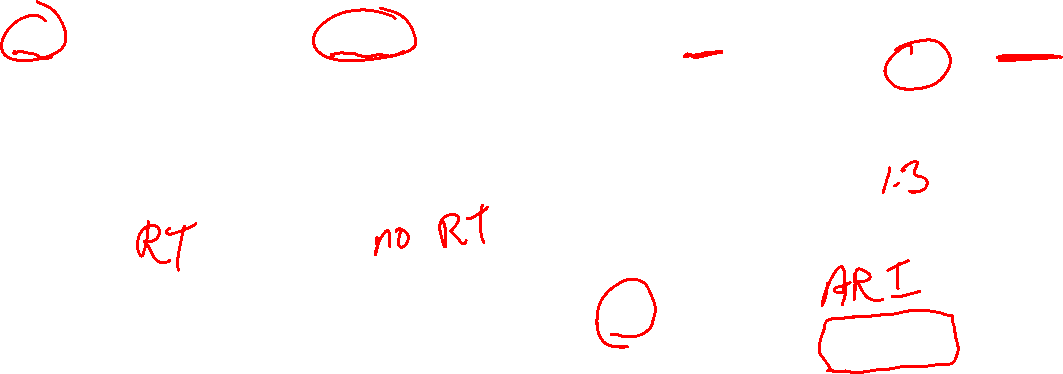 1.3
RT no RT
ARI